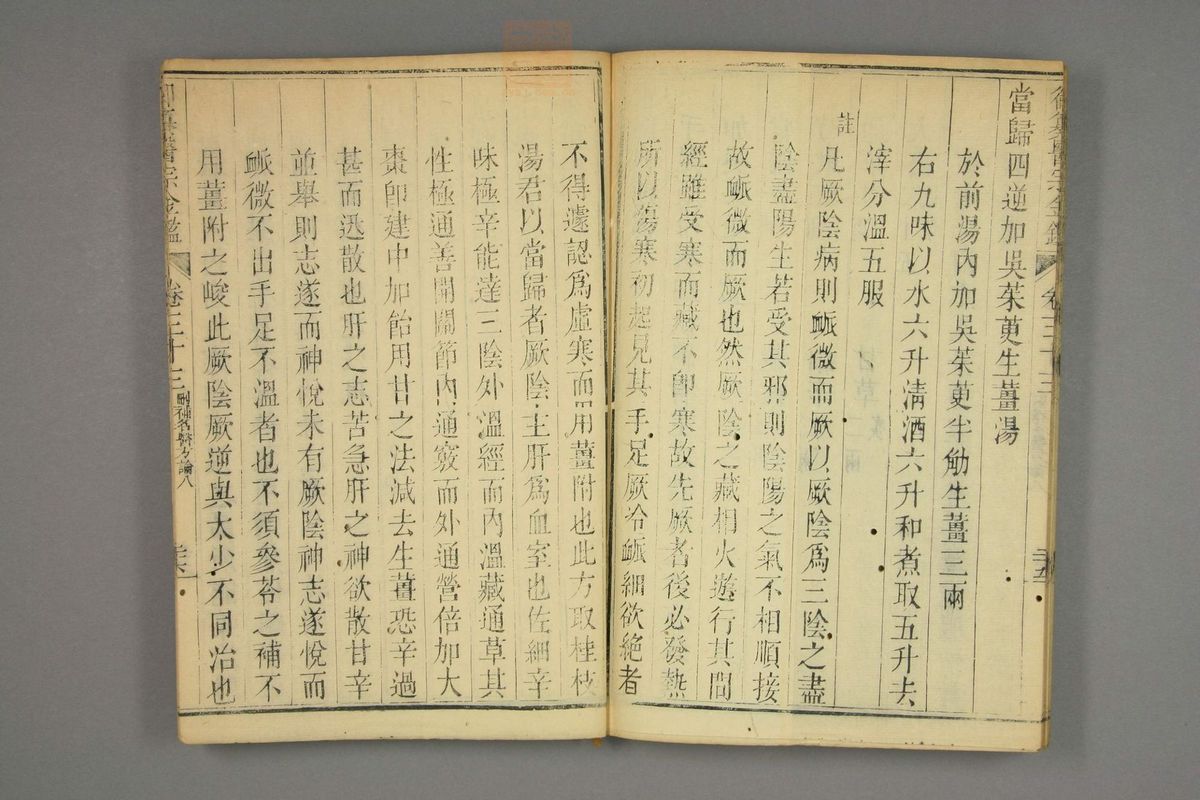 當歸四逆加吳茱萸生薑湯
於前湯內加吳茱萸半觔生薑三兩
右九味以水六升清酒六升和煮取五升去
滓分溫五服
註
凡厥陰病則脈微而厥以厥陰爲三陰之盡
陰盡陽生若受其邪則陰陽之氣不相順接
故脈微而厥也然厥陰之藏相火遊行其間
經雖受寒而藏不卽寒故先厥者後必發熱
所以傷寒初起見其手足厥冷脈細欲絕者
不得遽認爲虛寒而用薑附也此方取桂枝
湯君以當歸者厥陰主肝爲血室也佐細辛
味極辛能達三陰外溫經而內溫藏通草其
性極通善開關節內通竅而外通營倍加大
棗卽建中加飴用甘之法減去生薑恐辛過
甚而迅散也肝之志苦急肝之神欲散甘辛
並舉則志遂而神悅未有厥陰神志遂悅而
脈微不出手足不溫者也不須參苓之補不
用薑附之峻此厥陰厥逆與太少不同治也
御纂醫宗金鑑
卷三十三
刪補名醫方論八